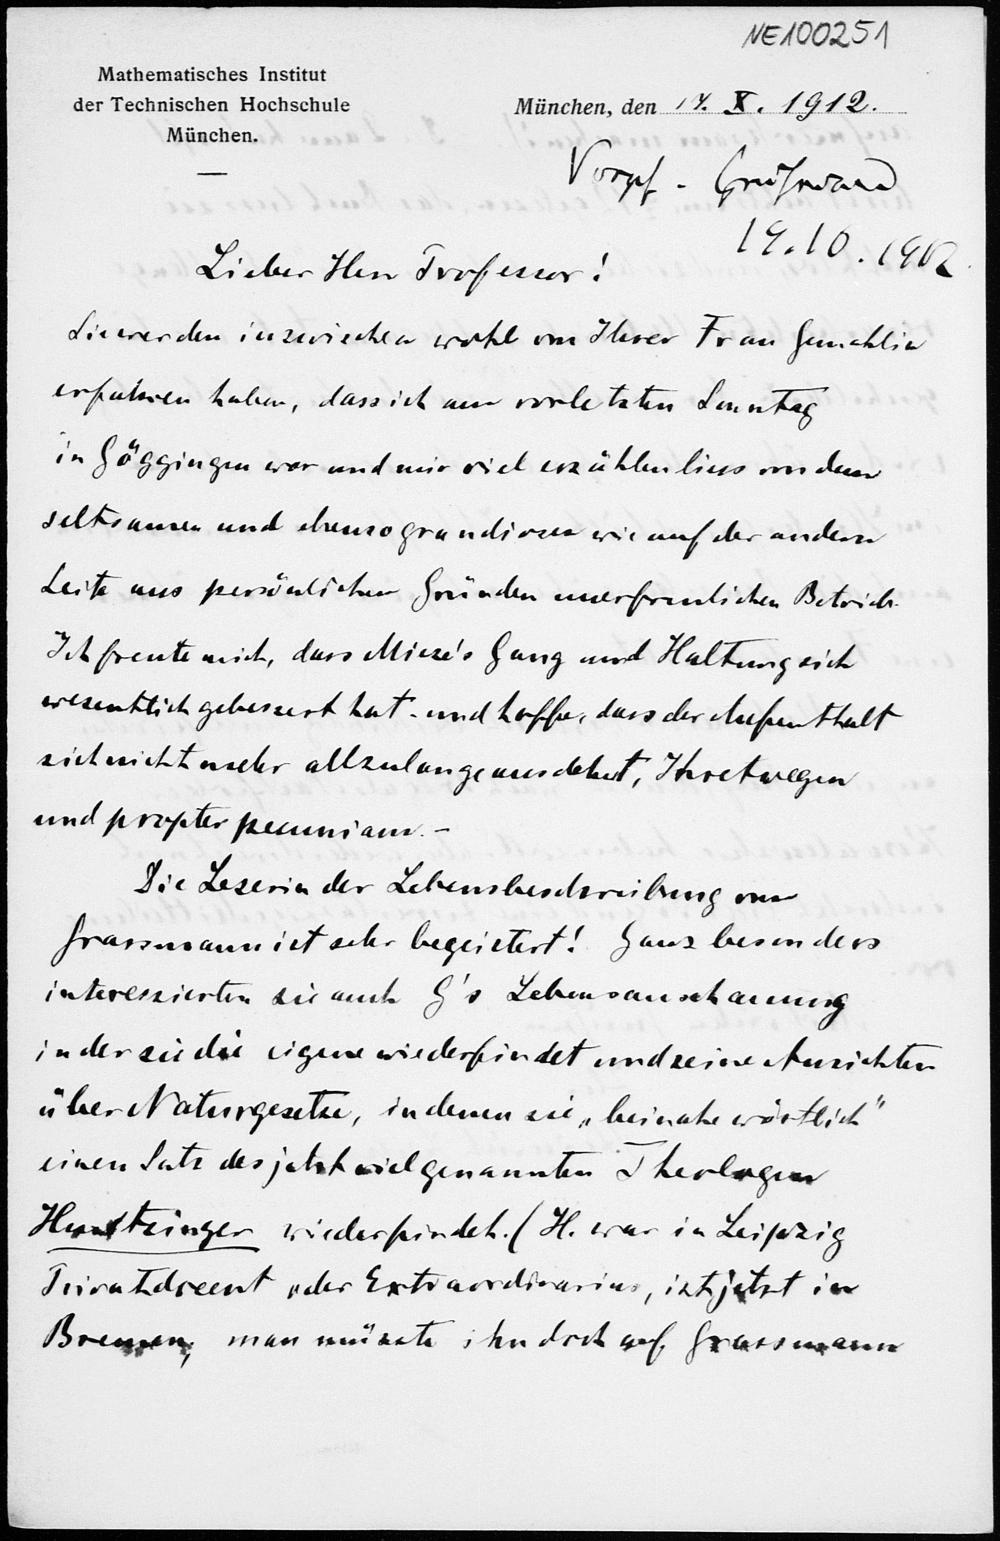 NE100251
Mathematisches Institut
der Technischen Hochschule
München.
München, den 14. X. 1912.
19.10.1912
Lieber Herr Professor!
Sie werden inzwischen wohl von Ihrer Frau Gemahlin
erfahren haben, dass ich am vorletzten Sonntag
in Göggingen war und mir viel erzählen liess von dem
seltsamen und ebenso grandiosen wie auf der andern
Seite aus persönlichen Gründen unerfreulichen Betrieb.
Ich freute mich, dass Mieze's Gang und Haltung sich
wesentlich gebessert hat - und hoffe, dass der Aufenthalt
sich nicht mehr allzulange ausdehnt, Ihretwegen
und propter pecuniam. -
Die Leserin der Lebensbeschreibung von
Grassmann ist sehr begeistert! Ganz besonders
interessierten sie auch G's Lebensanschauung
in der sie die eigene wiederfindet und seine Ansichten
über Naturgesetze, in denen sie „beinahe wörtlich"
einen Satz des jetzt vielgenannten Theologen
Huntzinger wiederfindet. (H. war in Leipzig
Privatdocent oder Extraordinarius, ist jetzt in
Bremen, man müsste ihn doch auf Grassmann